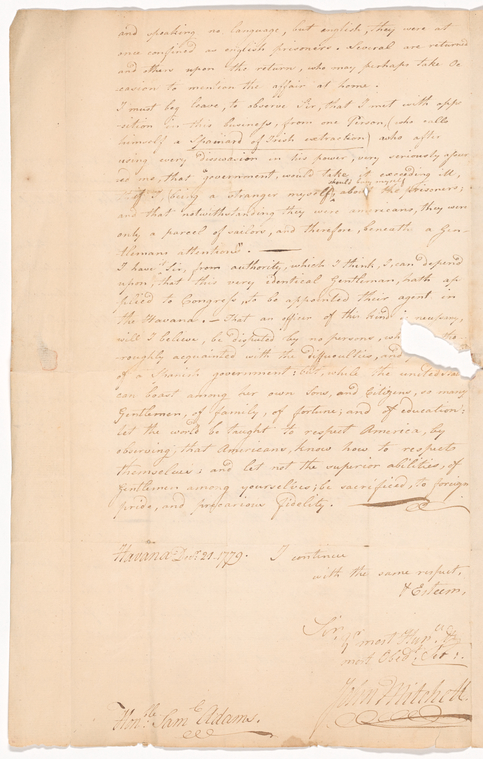 and speaking no language, but english, they were at
once confined as english prisoners. Several are returned
and others upon the return, who may perhaps take Oc
casion to mention the affair at home.
I must beg leave, to observe Sir, that I met with oppo
sition in this business, from one Person, (who calls
himself a Spaniard of Irish extraction) who after
using every disuasion in his power, very seriously assur
ed me, that "government, would take it exceeding ill,
if I, being a stranger myself, should busy myself about the prisoners;
and that notwithstanding they were americans, they were
only a parcel of sailors, and therefore, beneath a Gen-
tlemans attention".
I have Sir, from authority, which I think, I can depend
upon, that this very identical Gentleman, hath ap
plied to Congress, to be appointed their agent in
the Havana. That an officer of this kind is necessary,
will I believe, be disputed by no persons, who the
roughly acquainted with the difficulties, and
of a Spanish government: But, while the united
can boast among her own Sons, and Citizens, so many
Gentlemen, of family, of fortune, and of education;
let the world be taught to respect America, by
observing, that Americans, know how to respect
themselves; and let not the superior abilities, of
Gentlemen among yourselves, be sacrificed, to foreign
pride, and precarious fidelity.
Havana Decr. 21-1779. I continue
with the same respect,
& Esteem,
Sir,
Yr. most Humble &
most Obedt. Sert.
John P Mitchell.
Honble. Saml. Adams.